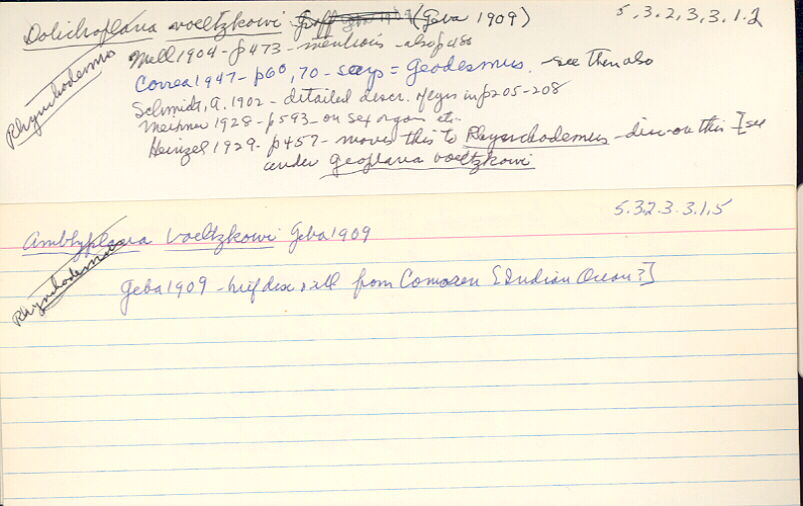 Dolichoplana voeltzkowi Graff (Geba 1909) 5.3.2.3.3.1.2
Rhynchodemus
Mell 1904 - p473 - mentions - also p488
Correa 1947 - p60, 70 - says = Geodesmus. - see then also
Schmidt, A. 1902 - detailed descr. of eyes in p205-208
Meixner 1928 - p593 - on sex organs etc.
Heinzel 1929 - p457 - moves this to Rhynchodemus - disc. on this [see
under Geoplana voeltzkowi
5.3.2.3.3.1.5
Amblyplana voeltzkowi Geba 1909
Rhynchodemus
Geba 1909 - brief disc + ill from Comoren [Indian Ocean?]